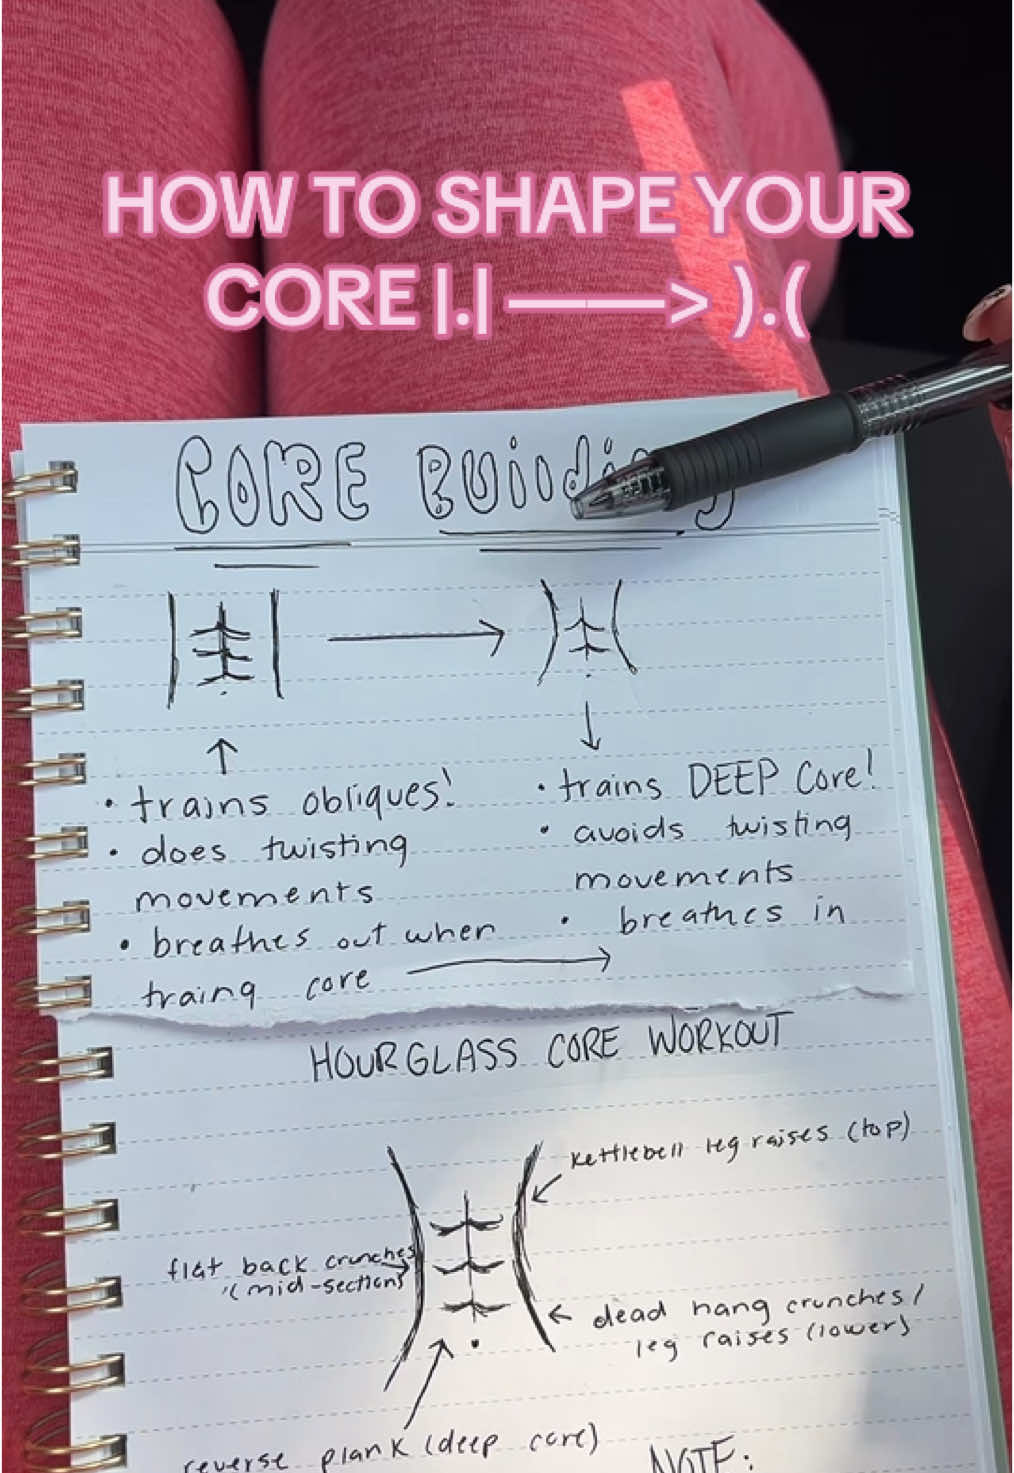 HOW TO SHAPE YOUR
CORE |.| ——> ).(
CORE Building
• trains obliques!
• does twisting
movements
• breathes out when
traing core
• trains DEEP Core!
• avoids twisting
movements
• breathes in
HOURGLASS CORE WORKOUT
kettlebell leg raises (top)
flat back crunches
(mid-section)
dead hang crunches/
leg raises (lower)
reverse plank (deep core)
NOTE: